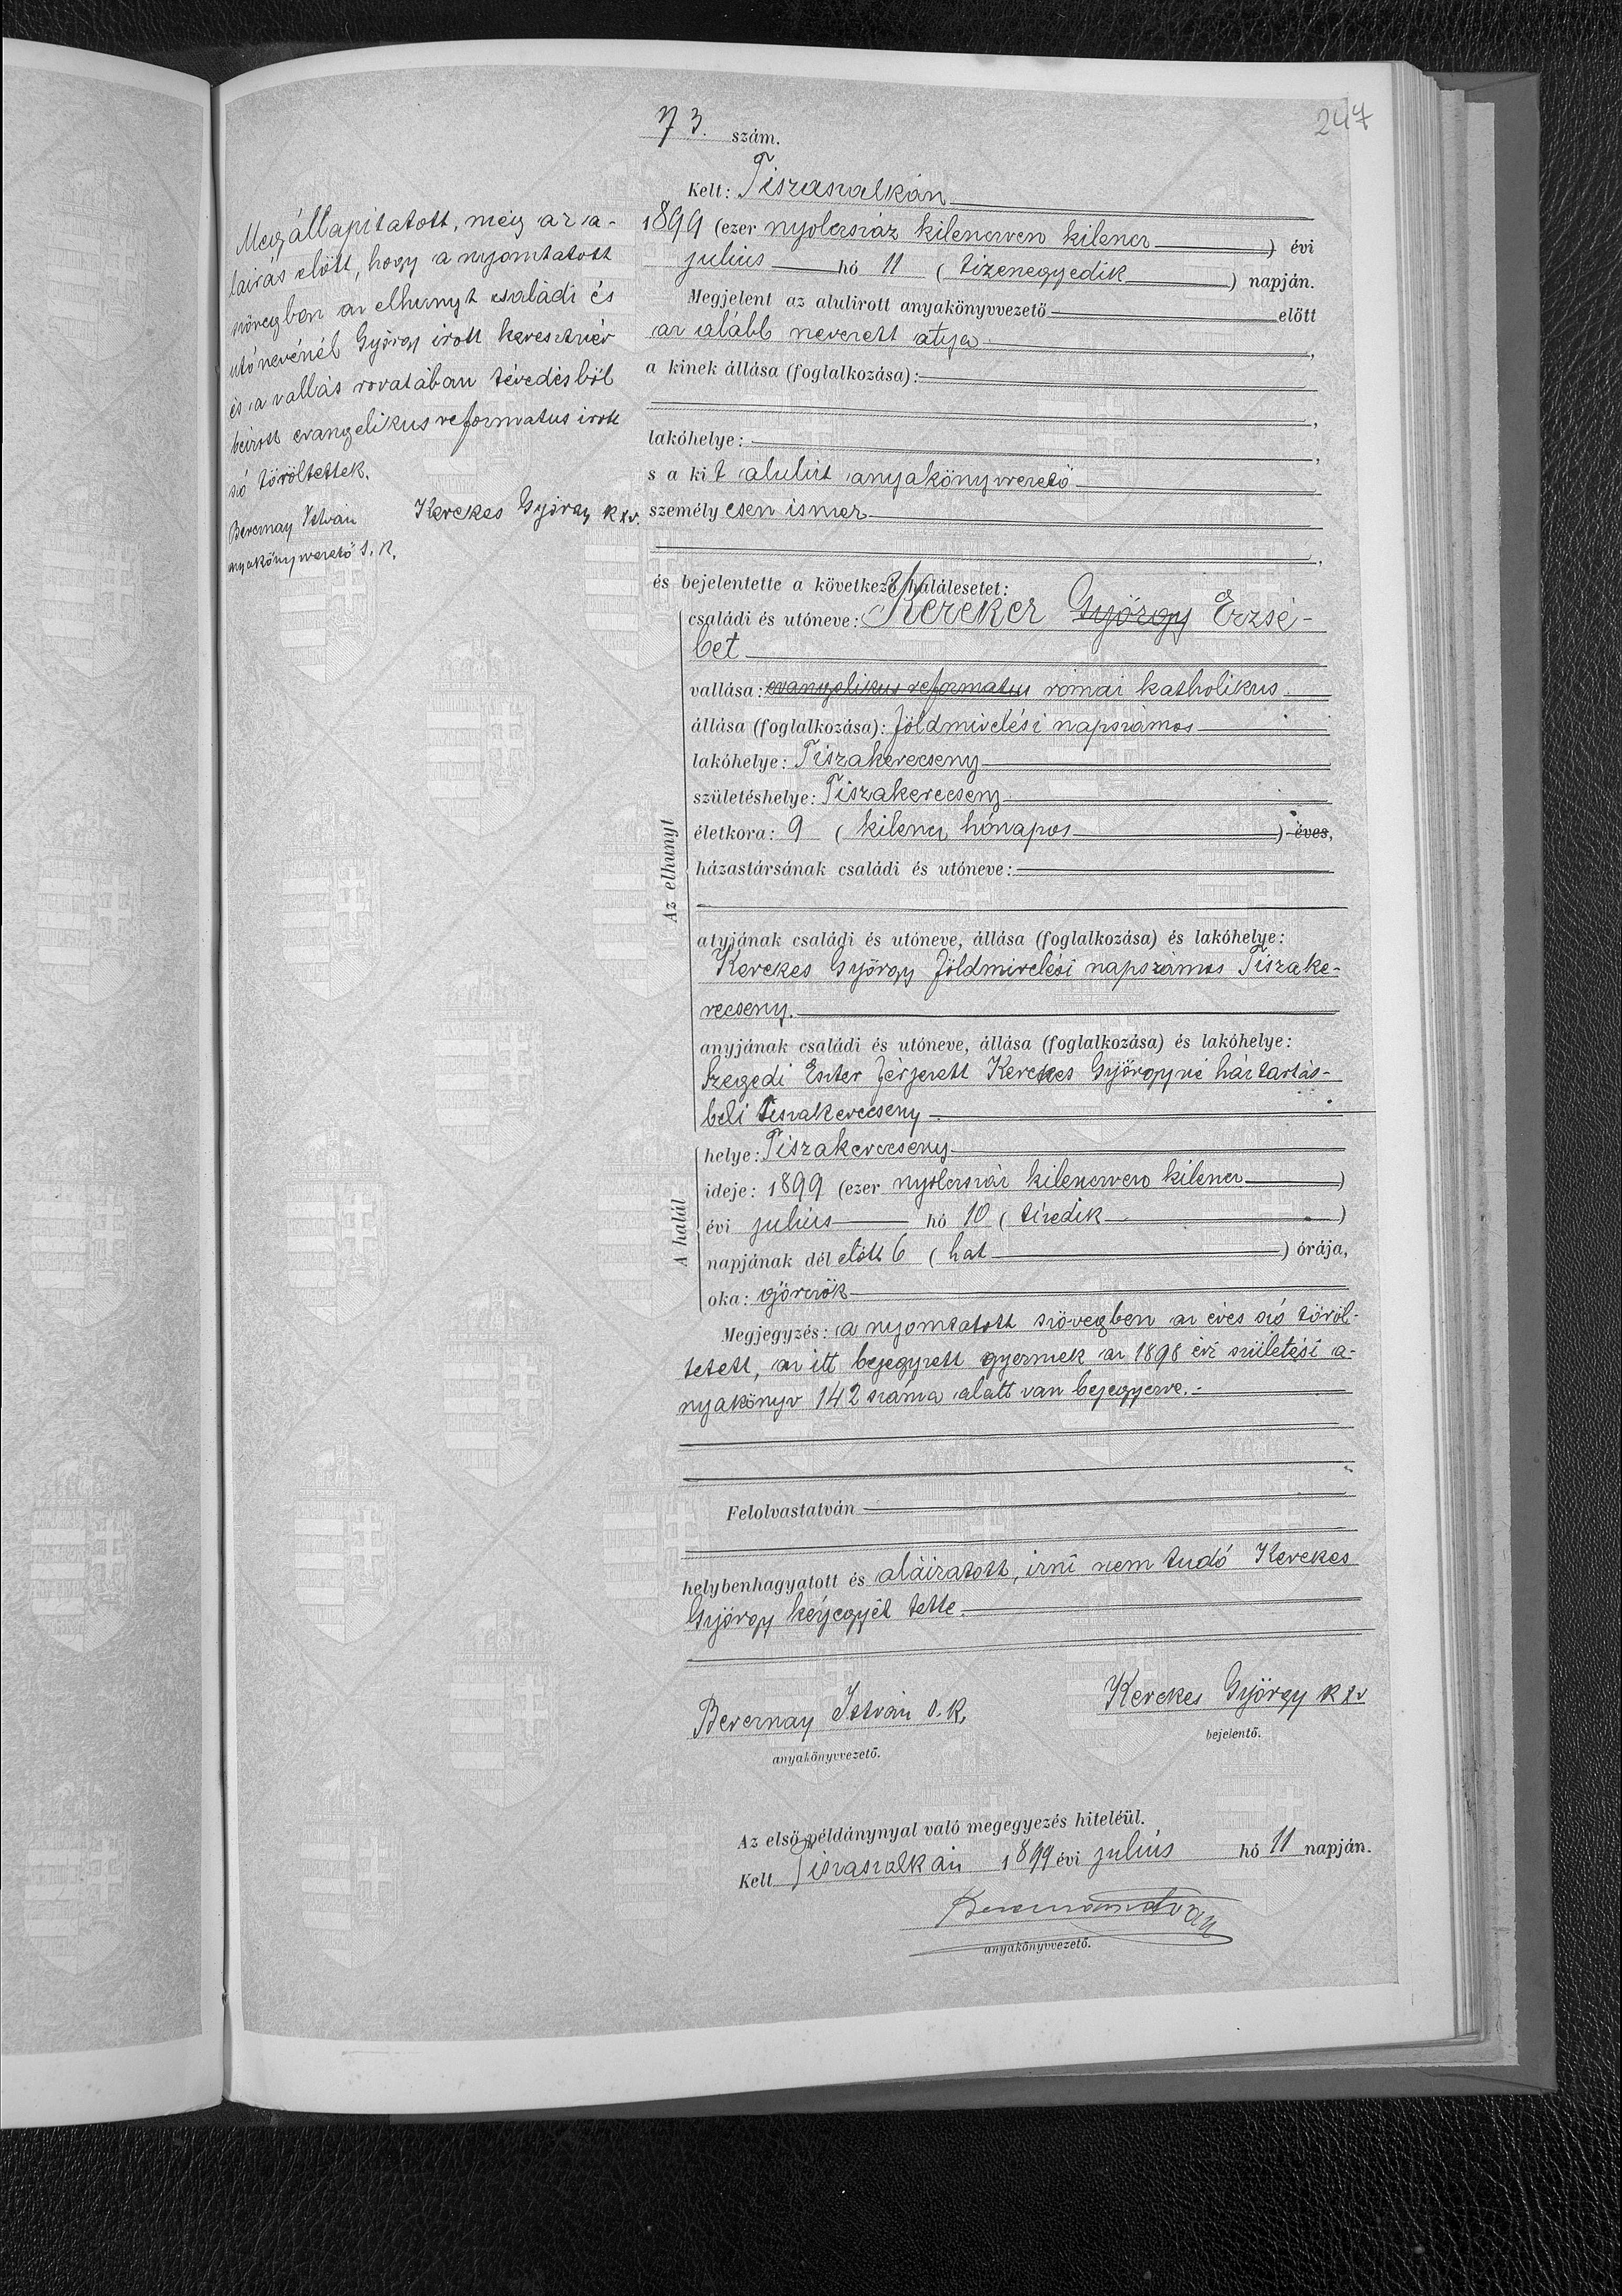 247
73. szám.
Kelt: Tiszaszalkán
1899 (ezer nyolcszáz kilencven kilenc) évi
julius hó 11 (tizenegyedik) napján.
Megjelent az alulirott anyakönyvvezető előtt
az alább nevezett atya,
a kinek állása (foglalkozása):
lakóhelye:
s a kit alulirt anyakönyvvezető
személyesen ismer
és bejelentette a következő halálesetet:
Az elhunyt
családi és utóneve: Kerekes György Erzsé-
bet
vallása: evangelikus reformatus római katholikus
állása (foglalkozása): földmivelési napszámos
lakóhelye: Tiszakerecseny
születéshelye: Tiszakerecseny
életkora: 9 (kilenc hónapos) éves,
házastársának családi és utóneve:
atyjának családi és utóneve, állása (foglalkozása) és lakóhelye:
Kerekes György földmivelési napszámos Tiszake-
recseny.
anyjának családi és utóneve, állása (foglalkozása) és lakóhelye:
Szegedi Eszter férjezett Kerekes Györgyné háztartás-
beli Tiszakerecseny
A halál
helye: Tiszakerecseny
ideje: 1899 (ezer nyolcszáz kilencven kilenc)
évi julius hó 10 (tizedik)
napjának dél előtt 6 (hat) órája,
oka: görcsök
Megjegyzés: a nyomtatott szövegben az éves szó töröl-
tetett, az itt bejegyzett gyermek az 1898 évi születési a-
nyakönyv 142 száma alatt van bejegyezve.
Felolvastatván
helybenhagyatott és aláiratott, irni nem tudó Kerekes
György kézjegyét tette.
Berecnay István s. k.
anyakönyvvezető.
Kerekes György k x v
bejelentő.
Az első példánynyal való megegyezés hiteléül.
Kelt Tiszaszalkán 1899 évi julius hó 11 napján.
anyakönyvvezető.
Megállapitatott, még az a-
láirás előtt, hogy a nyomtatott
szövegben az elhunyt családi és
utónevénél György irott keresztnév
és a vallás rovatában tévedésből
beirott evangelikus reformatus irott
szó töröltettek.
Berecnay István
anyakönyvvezető s. k.
Kerekes György k x v.